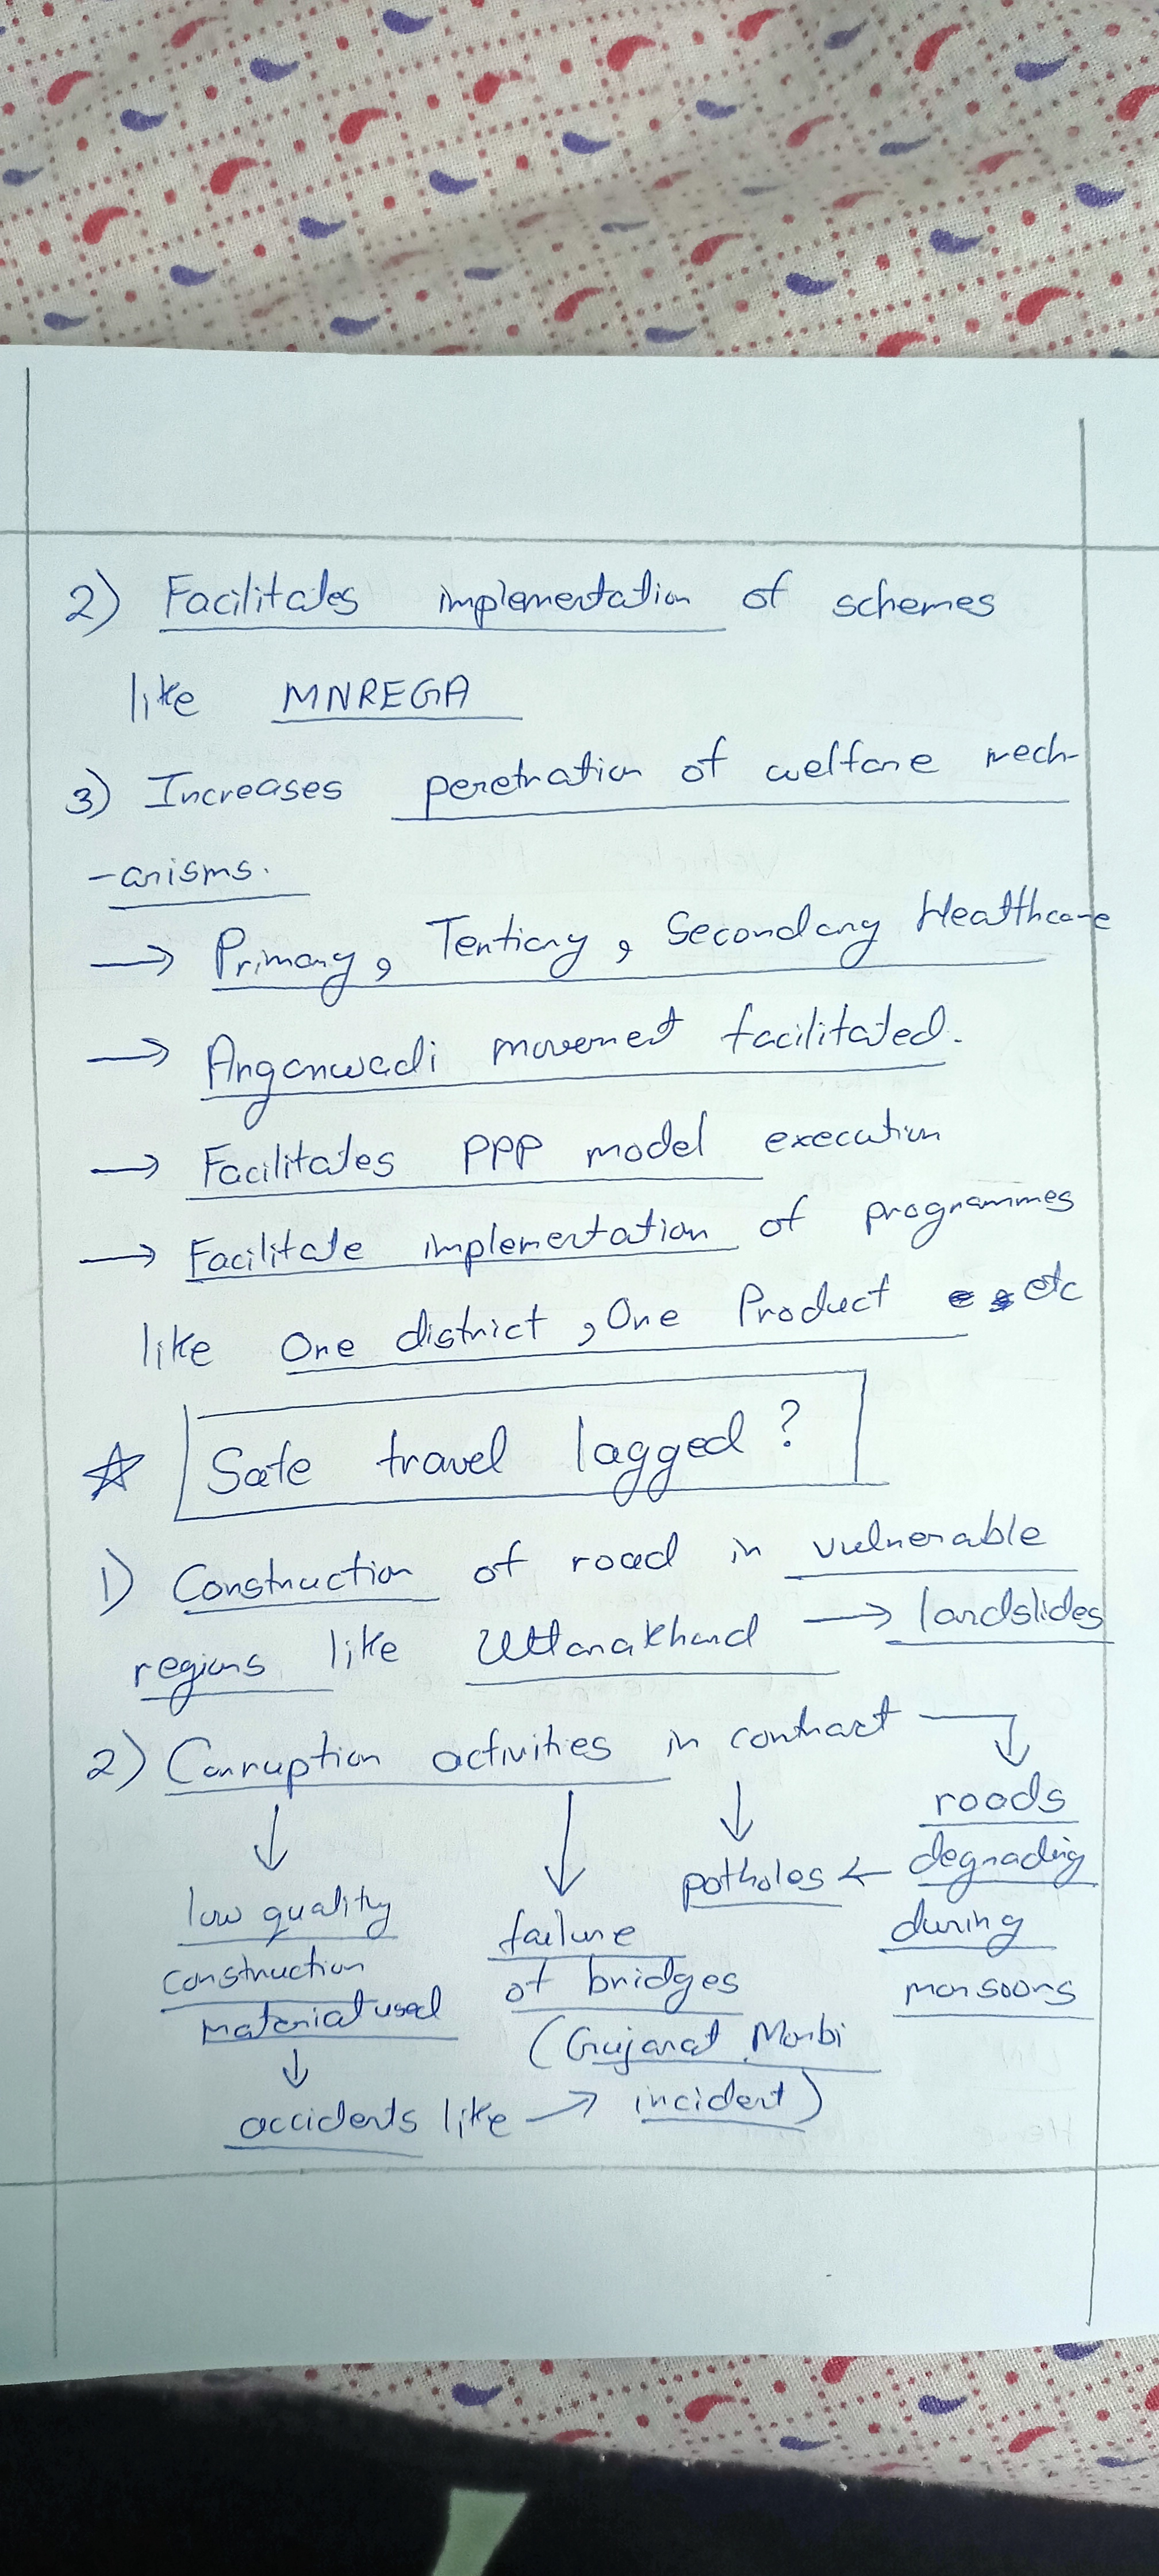 2) Facilitates implementation of schemes
like MNREGA
3) Increases penetration of welfare mech-
-anisms.
→ Primary, Tertiary, Secondary Healthcare
→ Anganwadi movement facilitated.
→ Facilitates PPP model execution
→ Facilitate implementation of programmes
like One district, One Product etc
☆ Safe travel lagged?
1) Construction of road in vulnerable
regions like Uttarakhand → landslides
2) Corruption activities in contract
↓ ↓ ↓ → roads
degrading
during
monsoons
potholes ←
low quality
construction
material used
↓
accidents like →
failure
of bridges
(Gujarat Morbi
incident)